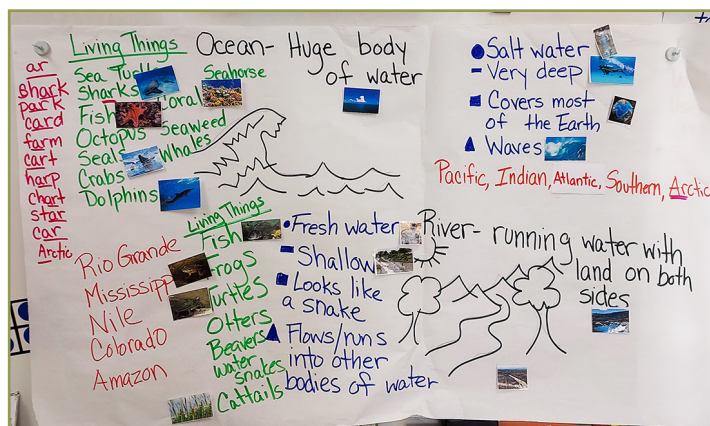 ar
shark
park
card
farm
cart
harp
chart
star
car
Arctic
Living Things
Sea Turtle
Sharks
Fish
Octopus
Seal
Crabs
Dolphins
Seahorse
Coral
Seaweed
Whales
Ocean- Huge body
of water
Salt water
Very deep
Covers most
of the Earth
Waves
Pacific, Indian, Atlantic, Southern, Arctic
Rio Grande
Mississippi
Nile
Colorado
Amazon
Living Things
Fish
Frogs
Turtles
Otters
Beavers
water
snakes
Cattails
Fresh water
Shallow
Looks like
a snake
Flows/runs
into other
bodies of water
River- running water with
land on both
sides